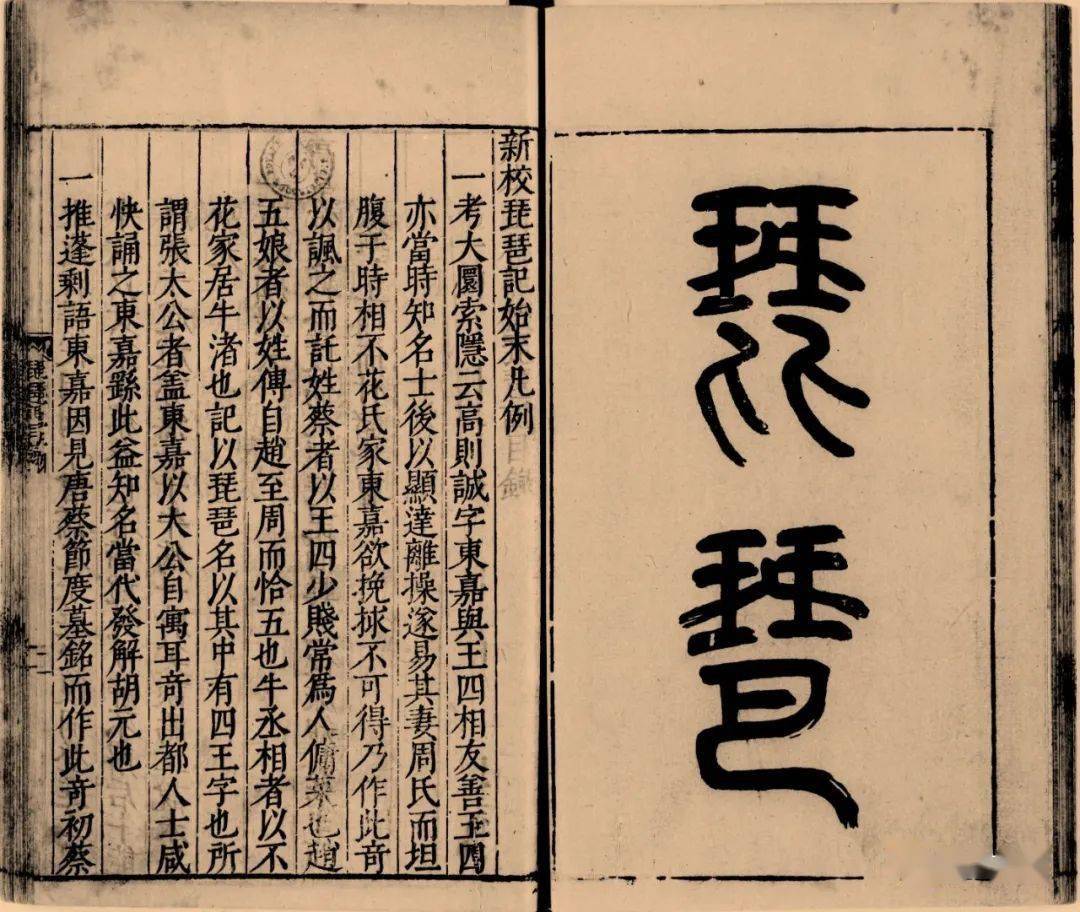 琵琶
新校琵琶記始末凡例
一考大圜索隱云高則誠字東嘉與王四相友善王四
亦當時知名士後以顯達離操遂易其妻周氏而坦
腹于時相不花氏家東嘉欲挽捄不可得乃作此竒
以諷之而託姓蔡者以王四少賤常爲人傭菜也趙
五娘者以姓傳自趙至周而恰五也牛丞相者以不
花家居牛渚也記以琵琶名以其中有四王字也所
謂張太公者盖東嘉以大公自寓耳竒出都人士咸
快誦之東嘉繇此益知名當代發解胡元也
一推蓬剩語東嘉因見唐蔡節度墓銘而作此竒初蔡